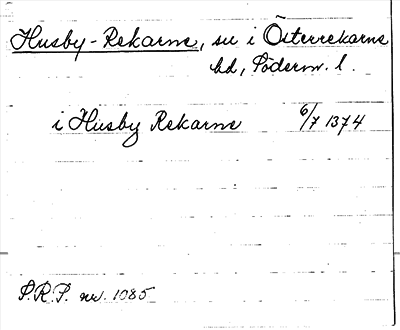 Husby-Rekarne, sn i Österrekarne
hd, Söderm. l.
i Husby Rekarne 6/7 1374
S.R.P. nr. 1085